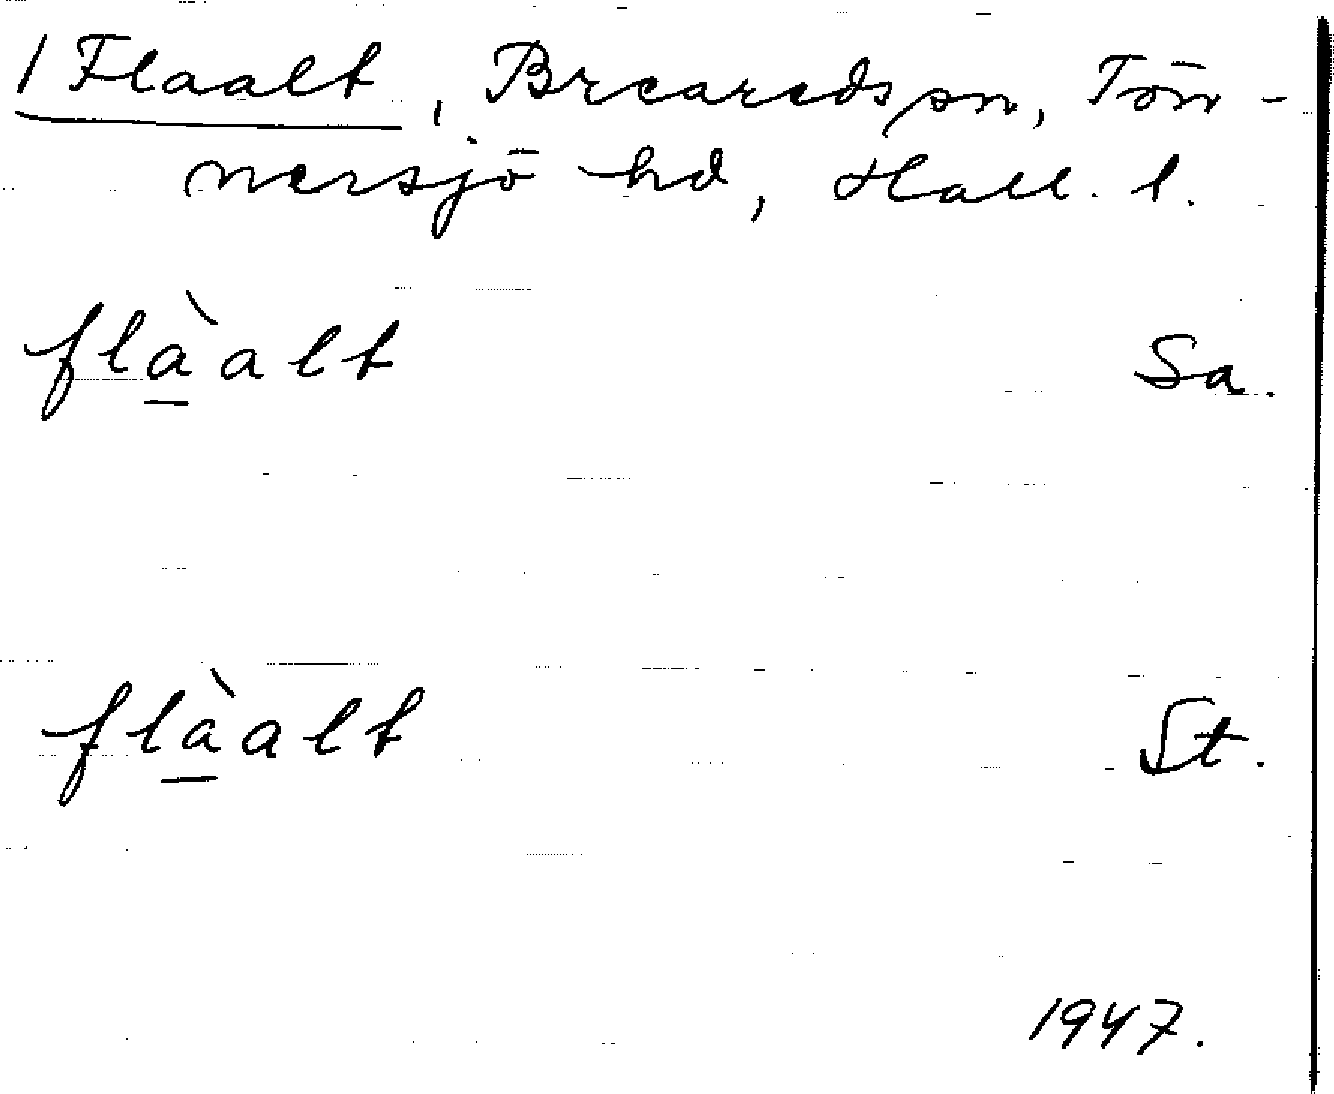 1 Flaalt, Breareds sn, Tön-
nersjö hd, Hall. l.
flà̱alt Sa.
flà̱alt St.
1947.